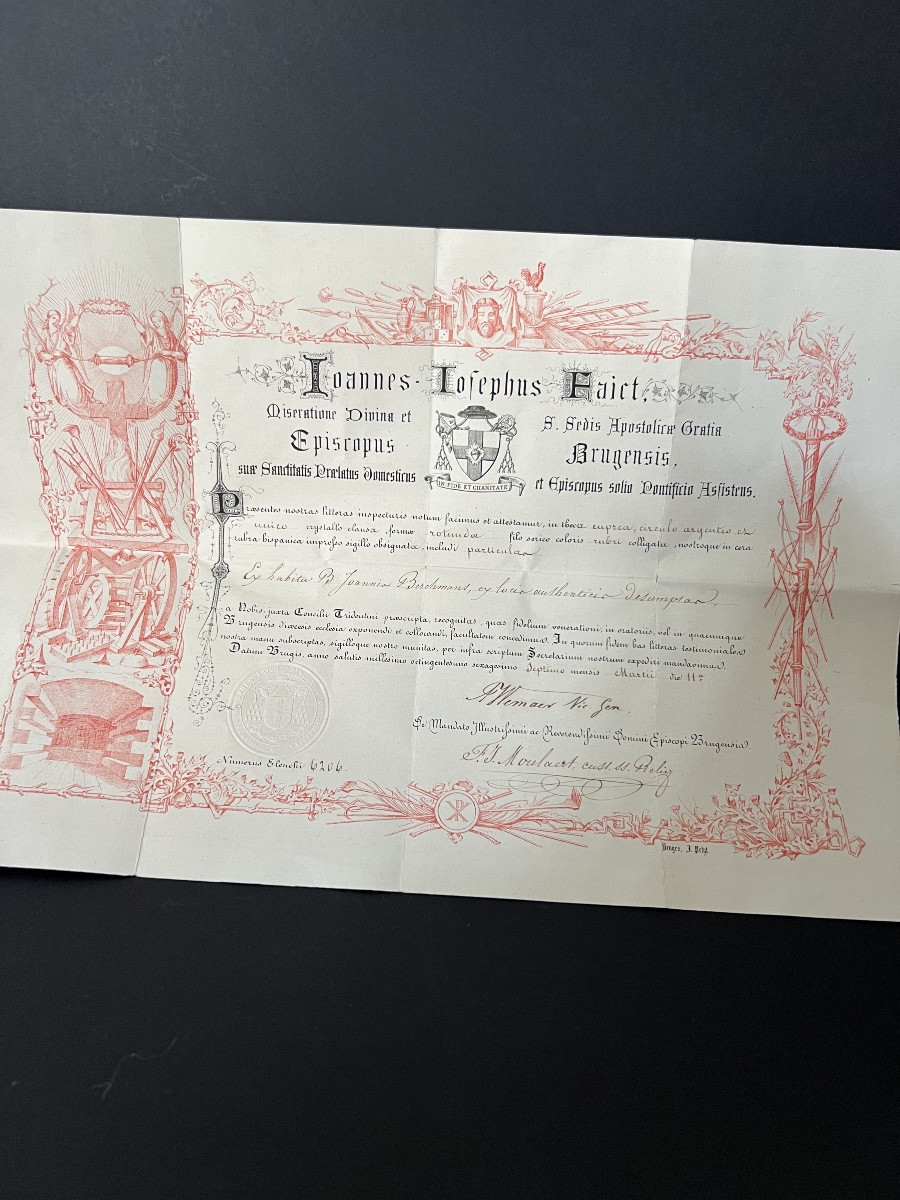 Ioannes-Iosephus Faict,
Miseratione Divina et S. Sedis Apostolicæ Gratia
Episcopus Brugensis,
suæ Sanctitatis Prælatus Domesticus et Episcopus solio Pontificio Assistens.
IN FIDE ET CHARITATE
Præsentes nostras litteras inspecturis notum facimus et attestamur, in theca cuprea, circulo argenteo ex
unico crystallo clausa, formæ rotunda filo serico coloris rubri colligata, nostroque in cera
rubra hispanica impresso sigillo obsignata, includi particulas
Ex habitu B Joannis Berchmans, ex locis authenticis desumptas,
a Nobis, juxta Concilii Tridentini præscripta, recognitas, quas fidelium venerationi, in oratoriis, vel in quacumque
Brugensis diœcesis ecclesia exponendi et collocandi, facultatem concedimus. In quorum fidem has litteras testimoniales
nostra manu subscriptas, sigilloque nostro munitas, per infra scriptum Secretarium nostrum expediri mandavimus.
Datum Brugis, anno salutis millesimo octingentesimo sexagesimo Septimo mensis Martii die 11ª
Vic Gen.
De Mandato Illustrissimi ac Reverendissimi Domini Episcopi Brugensis.
F. J. Moulaert, cust. ss. Reliq
Numerus Elenchi 6206.
Bruges, J. Petyt.